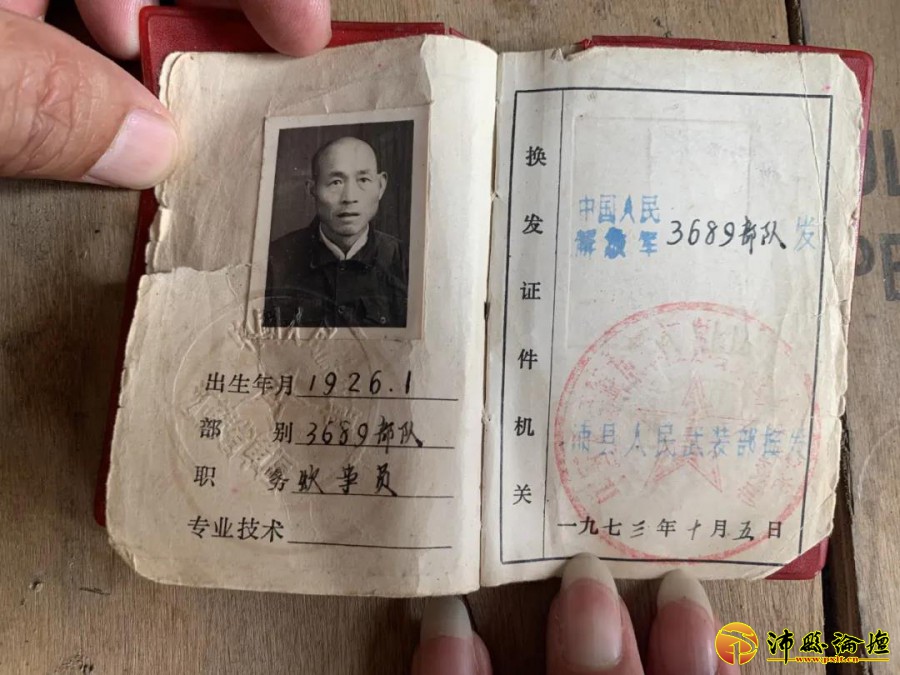 出生年月 1926.1
部别 3689部队
职务 炊事员
专业技术
换发证件机关
中国人民
解放军 3689部队 发
沛县人民武装部换发
一九七三年十月五日
沛县论坛
www.pxlt.cn